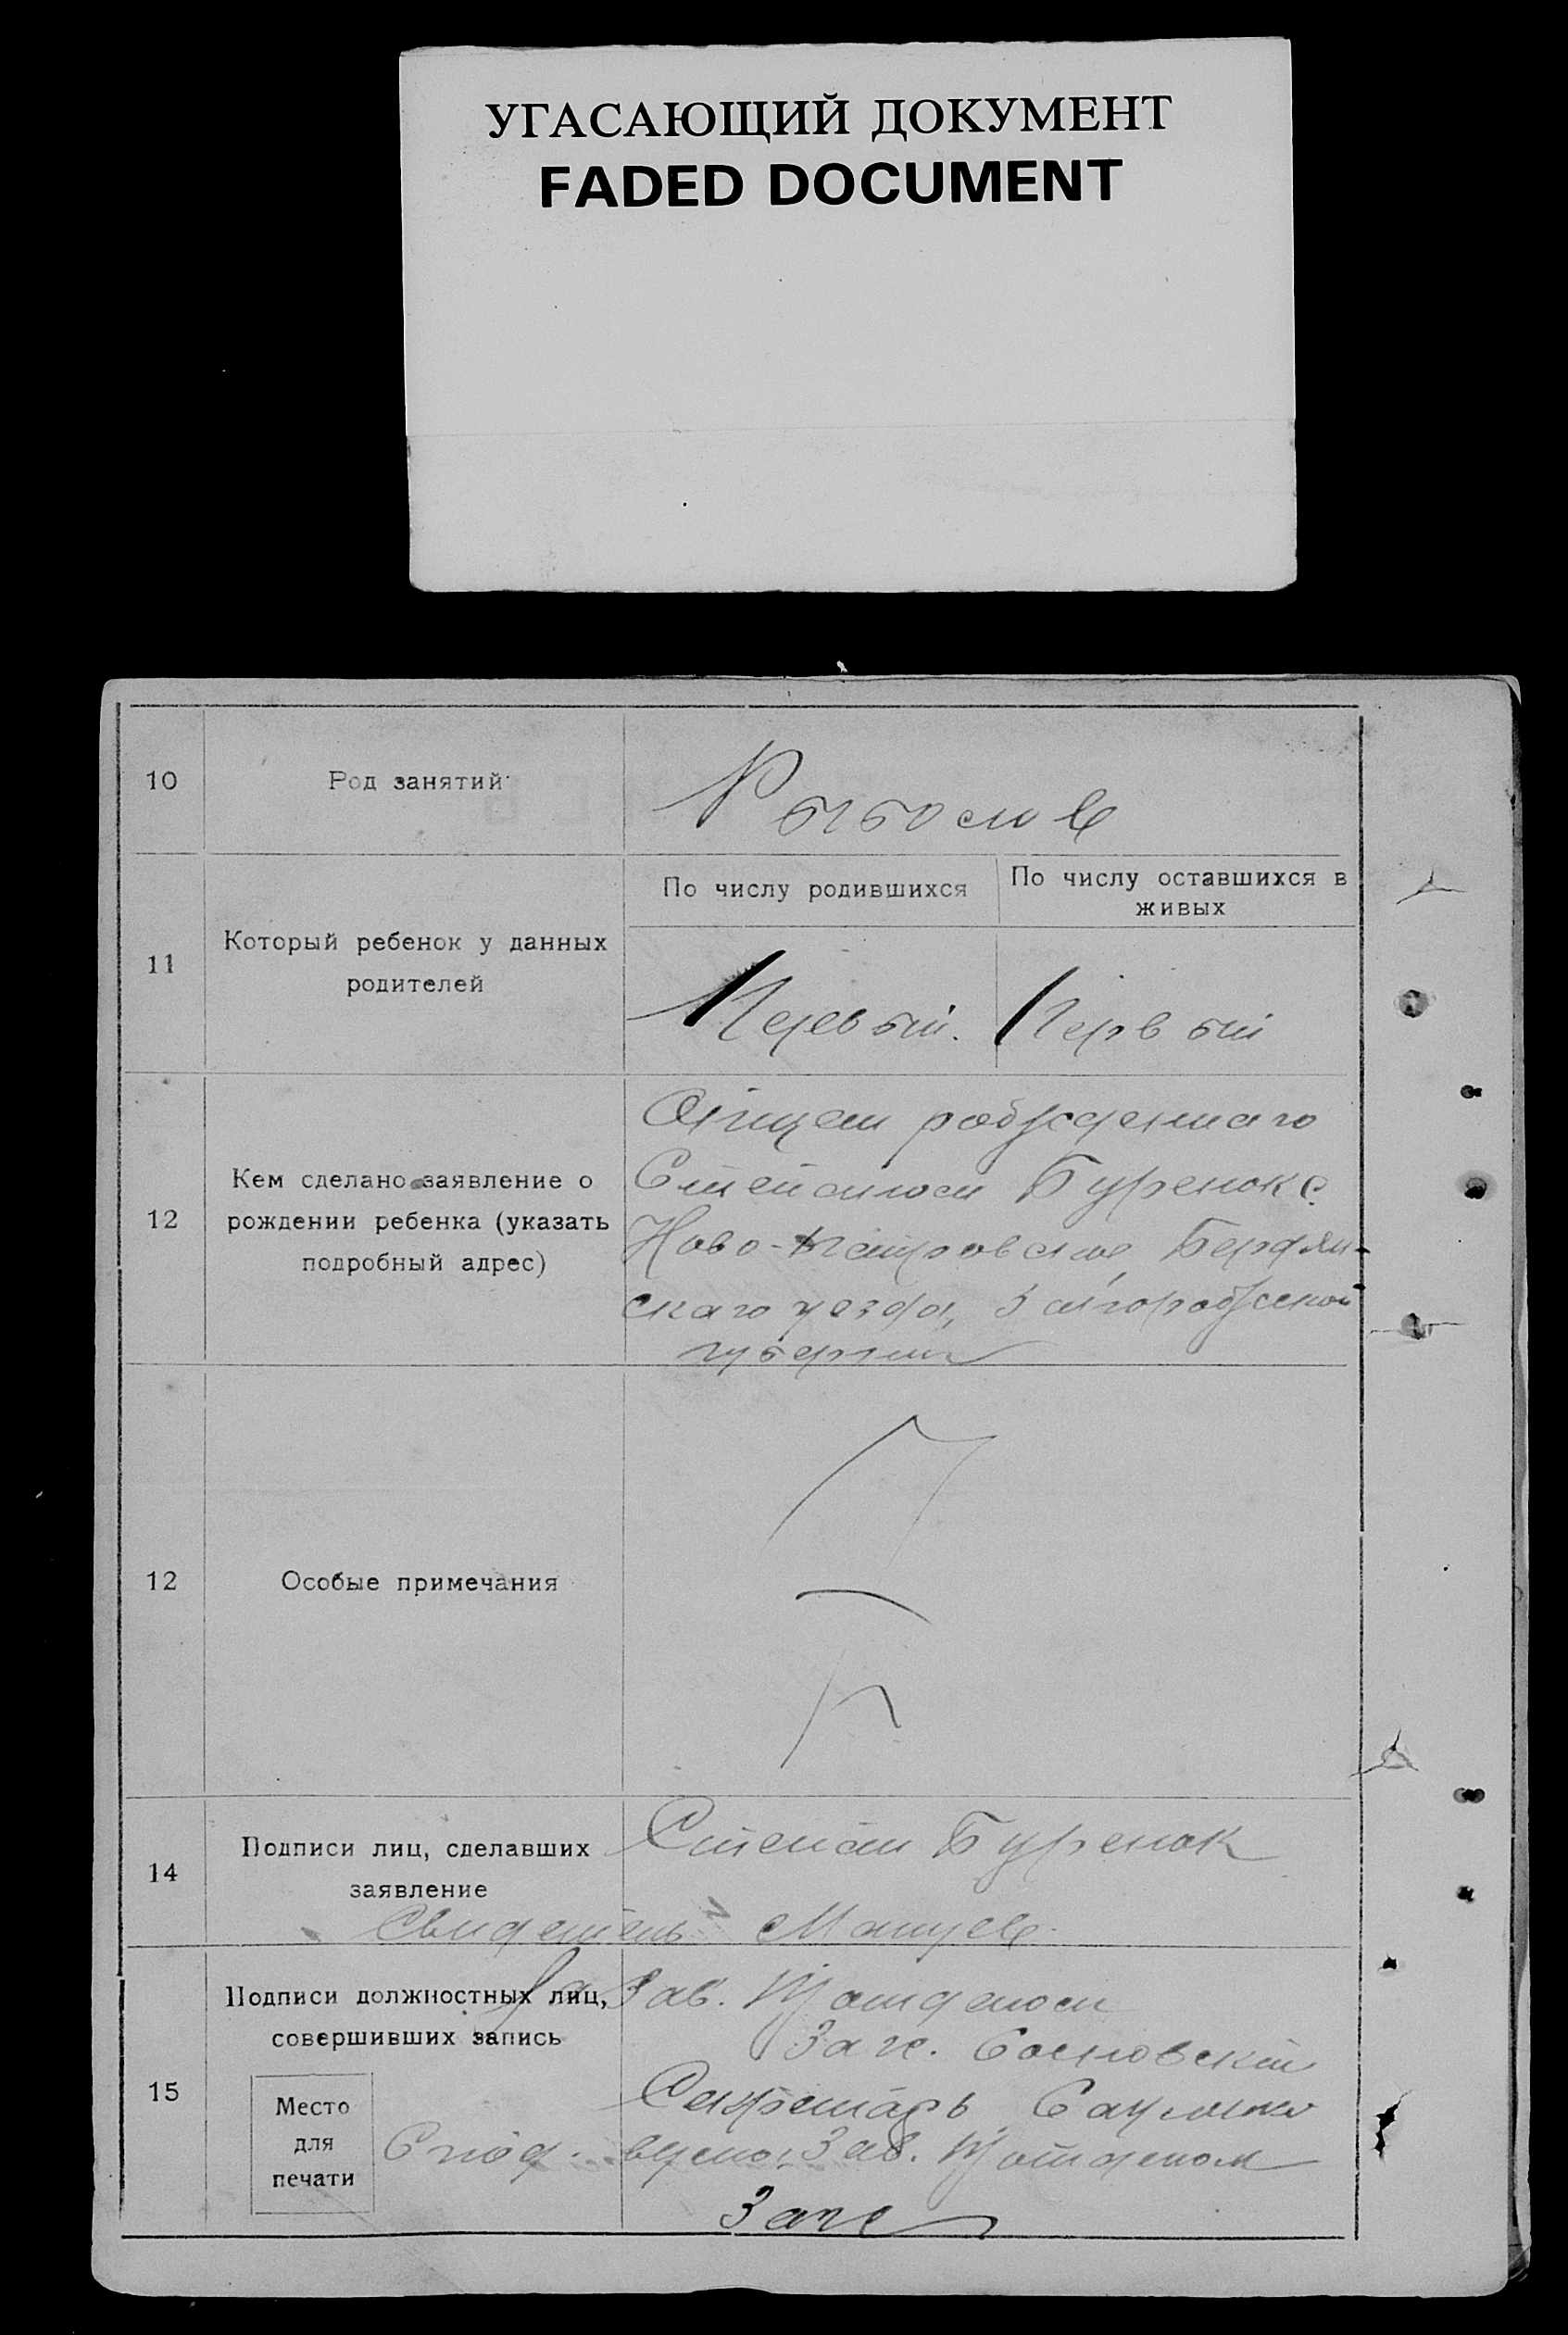 УГАСАЮЩИЙ ДОКУМЕНТ
FADED DOCUMENT
10
Род занятий
Рыболов
11
Который ребенок у данных
родителей
По числу родившихся
По числу оставшихся в
живых
Первый.
Первый
12
Кем сделано заявление о
рождении ребенка (указать
подробный адрес)
Отцем
Буренок с
Ново-Петровское, Бердян-
скаго уезда,
губернии
12
Особые примечания
14
Подписи лиц, сделавших
заявление
Степан Буренок
Свидетель
15
Подписи должностных лиц,
совершивших запись
За Зав.
Загс.
Секретарь
Место
для
печати
Зав.
Загс